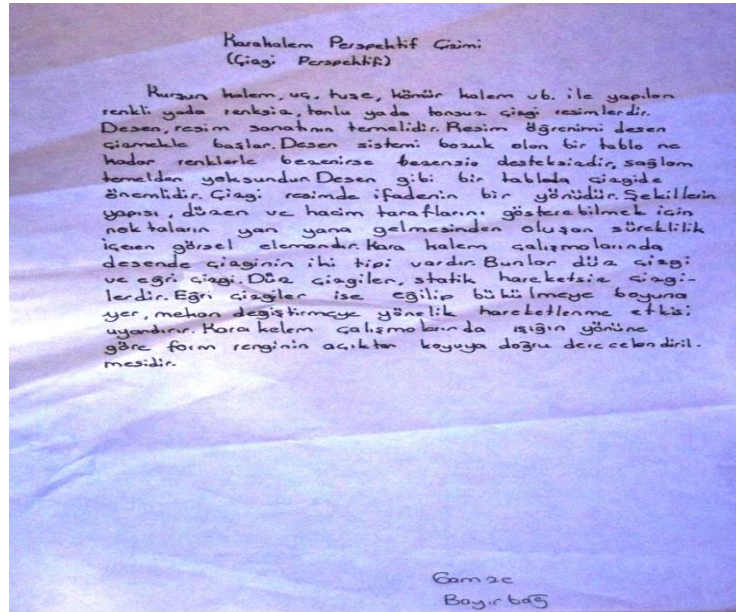 Karakalem Perspektif Çizimi
(Çizgi Perspektifi)
Kurşun kalem, uç, tuşe, kömür kalem vb. ile yapılan
renkli yada renksiz, tonlu yada tonsuz çizgi resimlerdir.
Desen, resim sanatının temelidir. Resim öğrenimi desen
çizmekle başlar. Desen sistemi bozuk olan bir tablo ne
kadar renklerle bezenirse bezensin desteksizdir, sağlam
temelden yoksundur. Desen gibi bir tabloda çizgide
önemlidir. Çizgi resimde ifadenin bir yönüdür. Şekillerin
yapısı, düzen ve hacim taraflarını gösterebilmek için
noktaların yan yana gelmesinden oluşan süreklilik
içeren görsel elemandır. Kara kalem çalışmalarında
desende çizginin iki tipi vardır. Bunlar düz çizgi
ve eğri çizgi. Düz çizgiler, statik hareketsiz çizgi-
lerdir. Eğri çizgiler ise eğilip bükülmeye boyuna
yer, mekan değiştirmeye yönelik hareketlenme etkisi
uyandırır. Kara kelem çalışmalarında ışığın yönüne
göre form renginin açıktan koyuya doğru derecelendiril-
mesidir.
Gamze
Bayırbağ